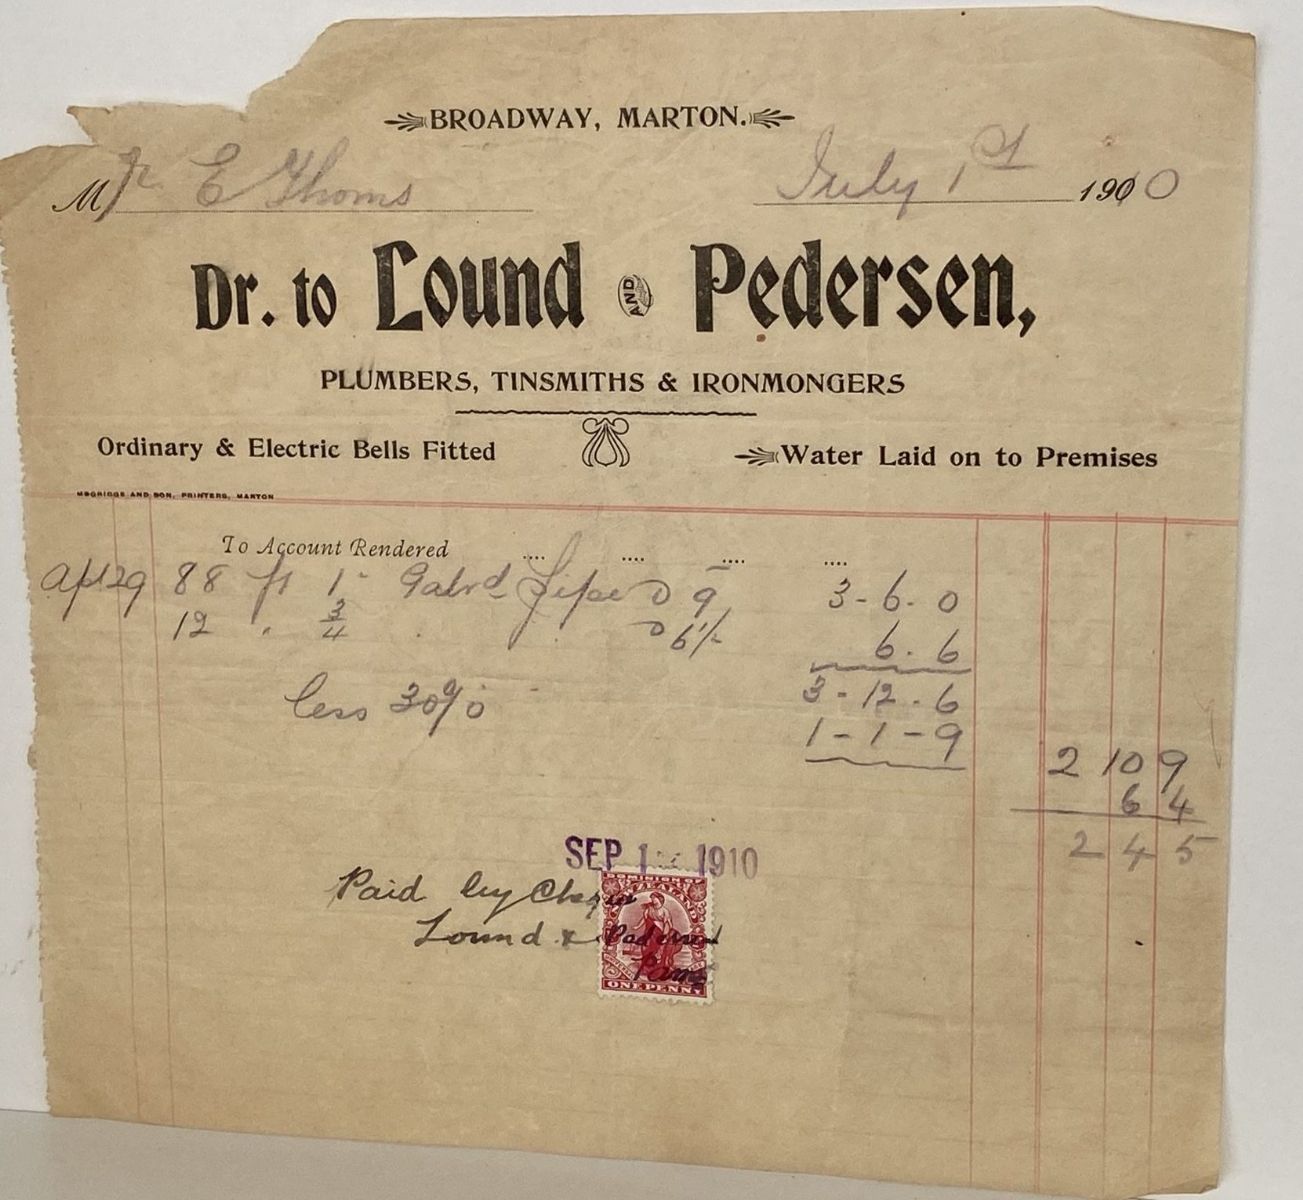 BROADWAY, MARTON.
Mr E Thoms July 1st 1910
Dr. to Lound AND Pedersen,
PLUMBERS, TINSMITHS & IRONMONGERS
Ordinary & Electric Bells Fitted Water Laid on to Premises
MCGRIGGS AND SON, PRINTERS, MARTON
To Account Rendered .... .... .... ....
Apl 29 88 ft 1" Galvd Pipe 9 3-6.0
12 " 3/4 " 6½ 6.6
less 30% 3-12-6
1-1-9 2 10 9
6 4
2 4 5
SEP 1 1910
Paid by Cheque
Lound & Pedersen
DOMINION OF
ZEALAND
ONE PENNY